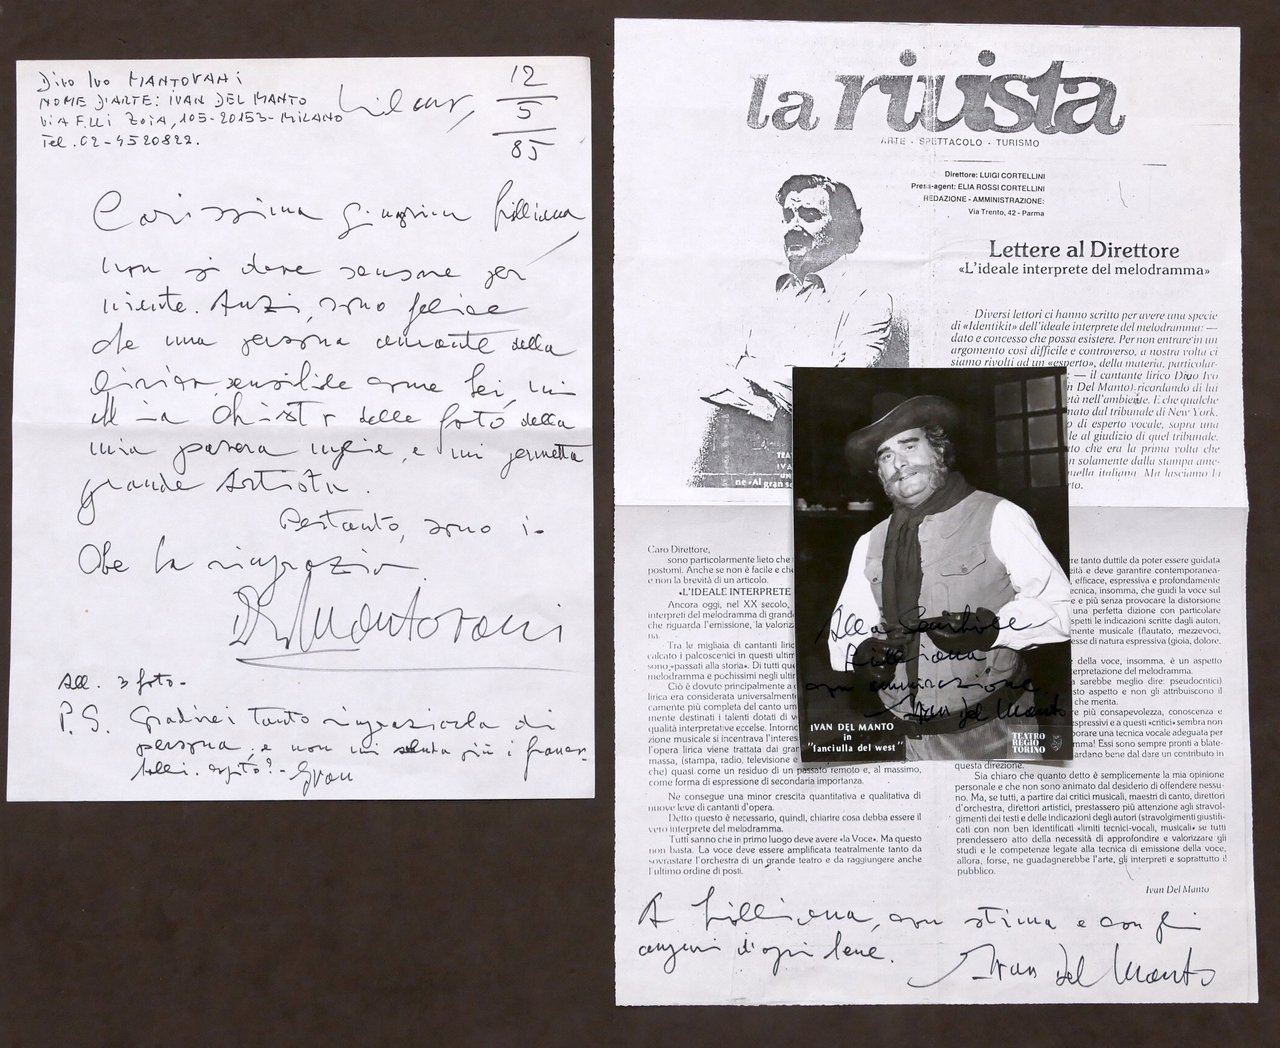 Divo Ivo MANTOVANI
NOME D'ARTE: IVAN DEL MANTO
VIA F.LLI ZOIA, 105-20153-MILANO
Tel. 02-4520822.
12
5
85
Carissima Signorina Lilliana,
non si deve scusare per
niente. Anzi, sono felice
che una persona amante della
lirica, sensibile come Lei, mi
delle foto della
mia povera moglie, e mi permetta
grande Artista.
Pertanto, sono io
che la ringrazia.
Mantovani
All. 3 foto-
P.S. Gradirei tanto ringraziarla di
persona, e non mi più i franco-
bolli. capito?- Ivan
la rivista
ARTE - SPETTACOLO - TURISMO
Direttore: LUIGI CORTELLINI
Press-agent: ELIA ROSSI CORTELLINI
REDAZIONE - AMMINISTRAZIONE:
Via Trento, 42 - Parma
Lettere al Direttore
«L'ideale interprete del melodramma»
Diversi lettori ci hanno scritto per avere una specie
di «Identikit» dell'ideale interprete del melodramma: —
dato e concesso che possa esistere. Per non entrare in un
argomento così difficile e controverso, a nostra volta ci
siamo rivolti ad un «esperto», della materia, particolar-
— il cantante lirico Divo Ivo
n Del Manto) ricordando di lui
età nell'ambiente. E che qualche
nato dal tribunale di New York.
di esperto vocale, sopra una
le al giudizio di quel tribunale.
to che era la prima volta che
n solamente dalla stampa ame-
quella italiana. Ma lasciamo la
rto.
ne «Al gran s
Caro Direttore,
sono particolarmente lieto che
postomi. Anche se non è facile e che
e non la brevità di un articolo.
«L'IDEALE INTERPRETE
Ancora oggi, nel XX secolo,
interpreti del melodramma di grande
che riguarda l'emissione, la valoriz
na.
Tra le migliaia di cantanti liric
calcato i palcoscenici in questi ultim
sono «passati alla storia». Di tutti que
melodramma e pochissimi negli ultim
Ciò è dovuto principalmente a
lirica era considerata universalmente
camente più completa del canto um
mente destinati i talenti dotati di v
qualità interpretative eccelse. Intorno
zione musicale si incentrava l'interes
l'opera lirica viene trattata dai gran
massa, (stampa, radio, televisione e
che) quasi come un residuo di un passato remoto e, al massimo,
come forma di espressione di secondaria importanza.
Ne consegue una minor crescita quantitativa e qualitativa di
nuove leve di cantanti d'opera.
Detto questo è necessario, quindi, chiarire cosa debba essere il
vero interprete del melodramma.
Tutti sanno che in primo luogo deve avere «la Voce». Ma questo
non basta. La voce deve essere amplificata teatralmente tanto da
sovrastare l'orchestra di un grande teatro e da raggiungere anche
l'ultimo ordine di posti.
ere tanto duttile da poter essere guidata
ità e deve garantire contemporanea-
efficace, espressiva e profondamente
ecnica, insomma, che guidi la voce sul
e e più senza provocare la distorsione
una perfetta dizione con particolare
spetti le indicazioni scritte dagli autori,
mente musicale (flautato, mezzevoci,
esse di natura espressiva (gioia, dolore,
della voce, insomma, è un aspetto
erpretazione del melodramma.
sarebbe meglio dire: pseudocritici)
sto aspetto e non gli attribuiscono il
che merita.
e più consapevolezza, conoscenza e
espressivi e a questi «critici» sembra non
porare una tecnica vocale adeguata per
mma! Essi sono sempre pronti a blate-
uardano bene dal dare un contributo in
questa direzione.
Sia chiaro che quanto detto è semplicemente la mia opinione
personale e che non sono animato dal desiderio di offendere nessu-
no. Ma, se tutti, a partire dai critici musicali, maestri di canto, direttori
d'orchestra, direttori artistici, prestassero più attenzione agli stravol-
gimenti dei testi e delle indicazioni degli autori (stravolgimenti giustifi-
cati con non ben identificati «limiti tecnici-vocali, musicali» se tutti
prendessero atto della necessità di approfondire e valorizzare gli
studi e le competenze legate alla tecnica di emissione della voce,
allora, forse, ne guadagnerebbe l'arte, gli interpreti e soprattutto il
pubblico.
Ivan Del Manto
Alla Gentile
Lilliana
ogni ammirazione
Ivan Del Manto
IVAN DEL MANTO
in
"fanciulla del west"
TEATRO
REGIO
TORINO
A Lilliana, con stima e con gli
auguri d'ogni bene.
Ivan Del Manto